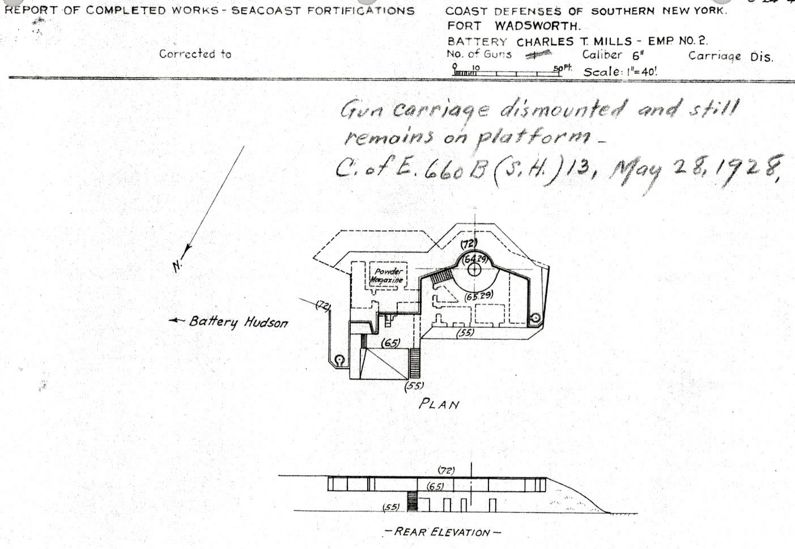 REPORT OF COMPLETED WORKS - SEACOAST FORTIFICATIONS
Corrected to
COAST DEFENSES OF SOUTHERN NEW YORK.
FORT WADSWORTH.
BATTERY CHARLES T. MILLS - EMP NO. 2.
No. of Guns Caliber 6" Carriage Dis.
0 10 50 Ft. Scale: 1"=40'.
Gun carriage dismounted and still
remains on platform -
C. of E. 660 B (S.H.) 13, May 28, 1928,
N.
(72)
(64.29)
Powder
Magazine
(65.29)
(72)
← Battery Hudson
(55)
(65)
(55)
PLAN
(72)
(65)
(55)
- REAR ELEVATION -